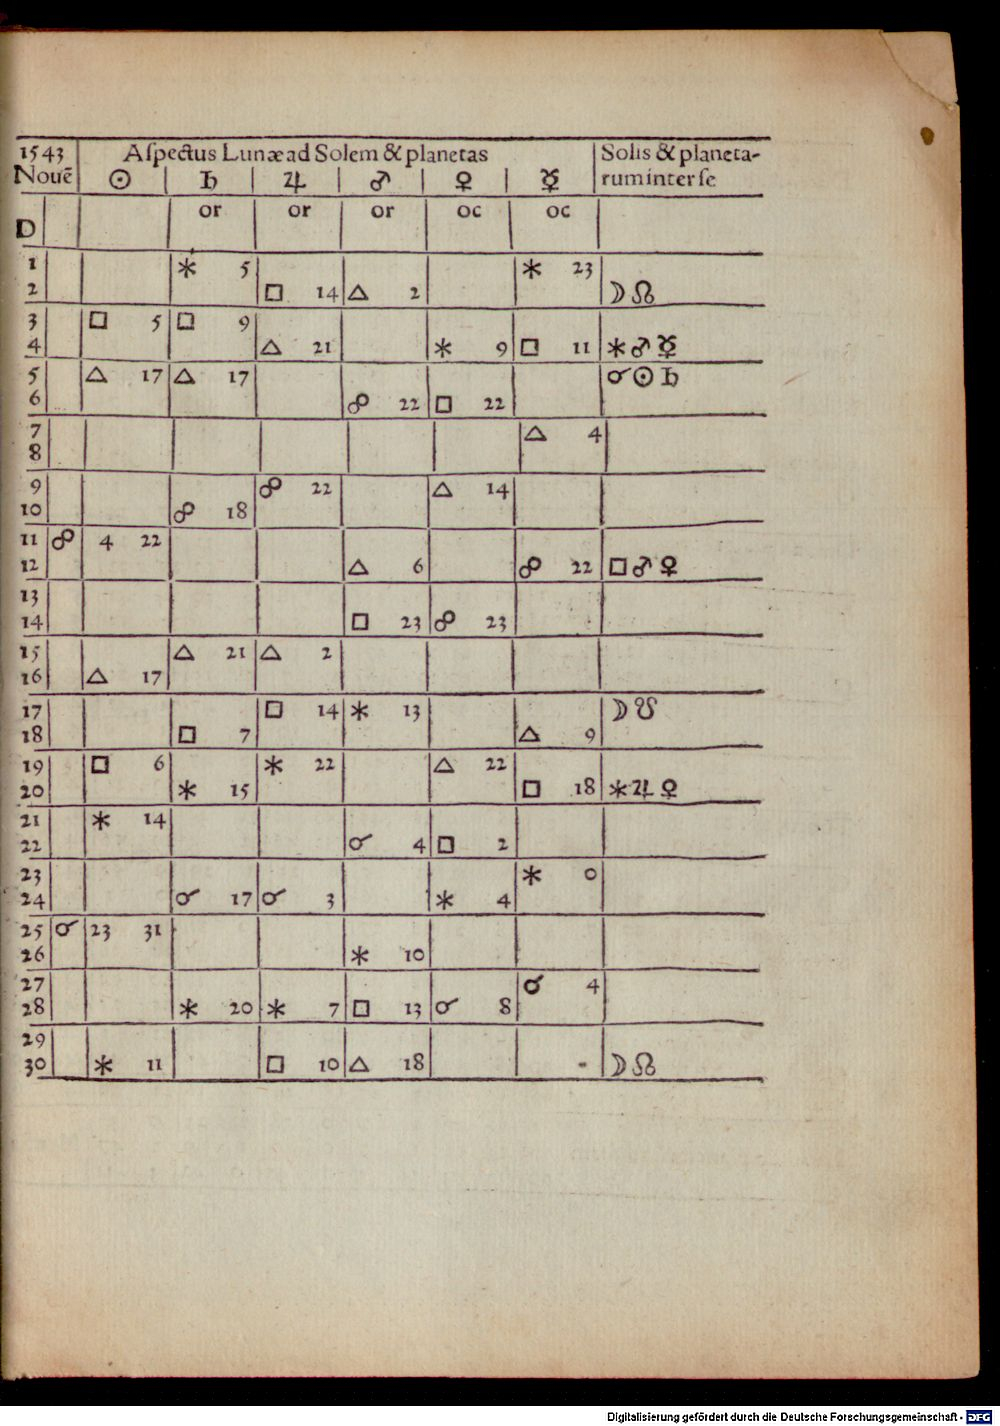 1543 Aſpectus Lunæ ad Solem & planetas Solis & planeta-
Nouē ☉ ♄ ♃ ♂ ♀ ☿ rum inter ſe
D or or or oc oc
1 ⚹ 5 ⚹ 23
2 □ 14 △ 2 ☽ ☊
3 □ 5 □ 9
4 △ 21 ⚹ 9 □ 11 ⚹ ♂ ☿
5 △ 17 △ 17 ☌ ☉ ♄
6 ☍ 22 □ 22
7 △ 4
8
9 ☍ 22 △ 14
10 ☍ 18
11 ☍ 4 22
12 △ 6 ☍ 22 □ ♂ ♀
13
14 □ 23 ☍ 23
15 △ 21 △ 2
16 △ 17
17 □ 14 ⚹ 13 ☽ ☋
18 □ 7 △ 9
19 □ 6 ⚹ 22 △ 22
20 ⚹ 15 □ 18 ⚹ ♃ ♀
21 ⚹ 14
22 ☌ 4 □ 2
23 ⚹ 0
24 ☌ 17 ☌ 3 ⚹ 4
25 ☌ 23 31
26 ⚹ 10
27 ☌ 4
28 ⚹ 20 ⚹ 7 □ 13 ☌ 8
29
30 ⚹ 11 □ 10 △ 18 ☽ ☊
Digitalisierung gefördert durch die Deutsche Forschungsgemeinschaft - DFG